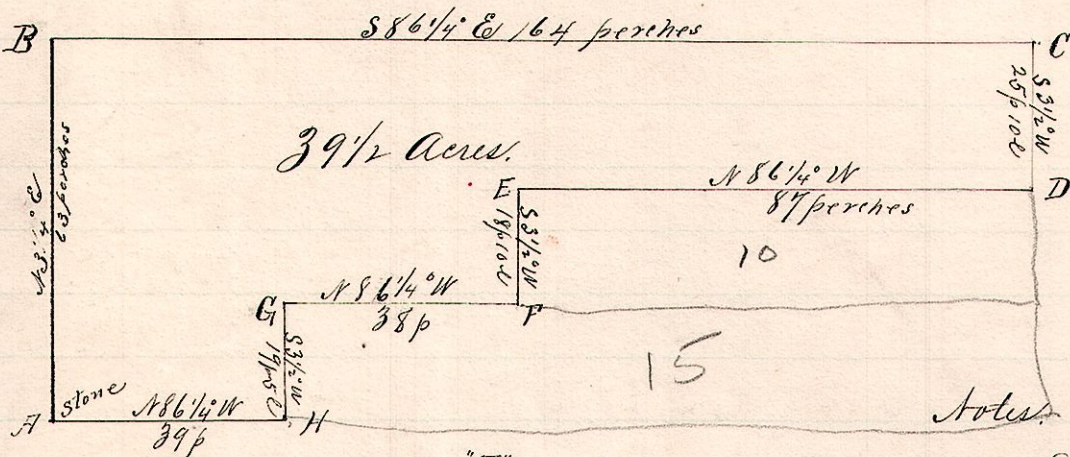 S 86 1/4° E 164 perches
B
C
S 3 1/2° W
25p 10l
39 1/2 Acres.
N 3 1/4° E
63 perches
E
N 86 1/4° W
D
87 perches
S 3 1/2° W
18p 10l
10
G
N 86 1/4° W
F
38p
S 3 1/2° W
19p 5l
15
A
Stone
N 86 1/4° W
H
39p
Notes.